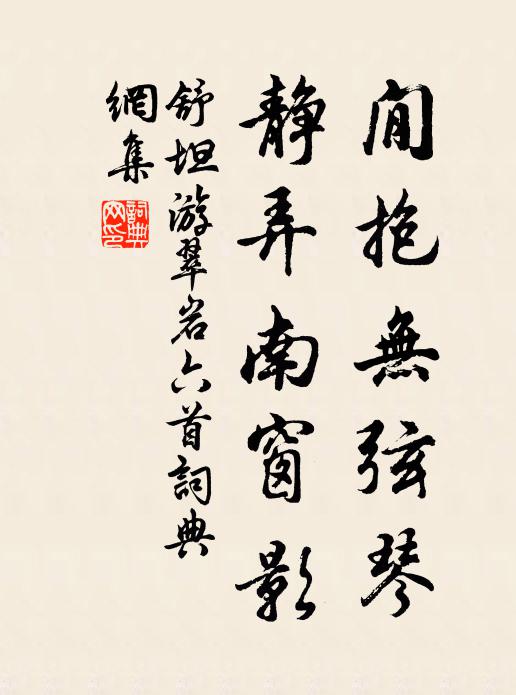 閒抱無弦琴
靜弄南窗影
舒坦游翠岩六首詞典
網集
詞典
网印